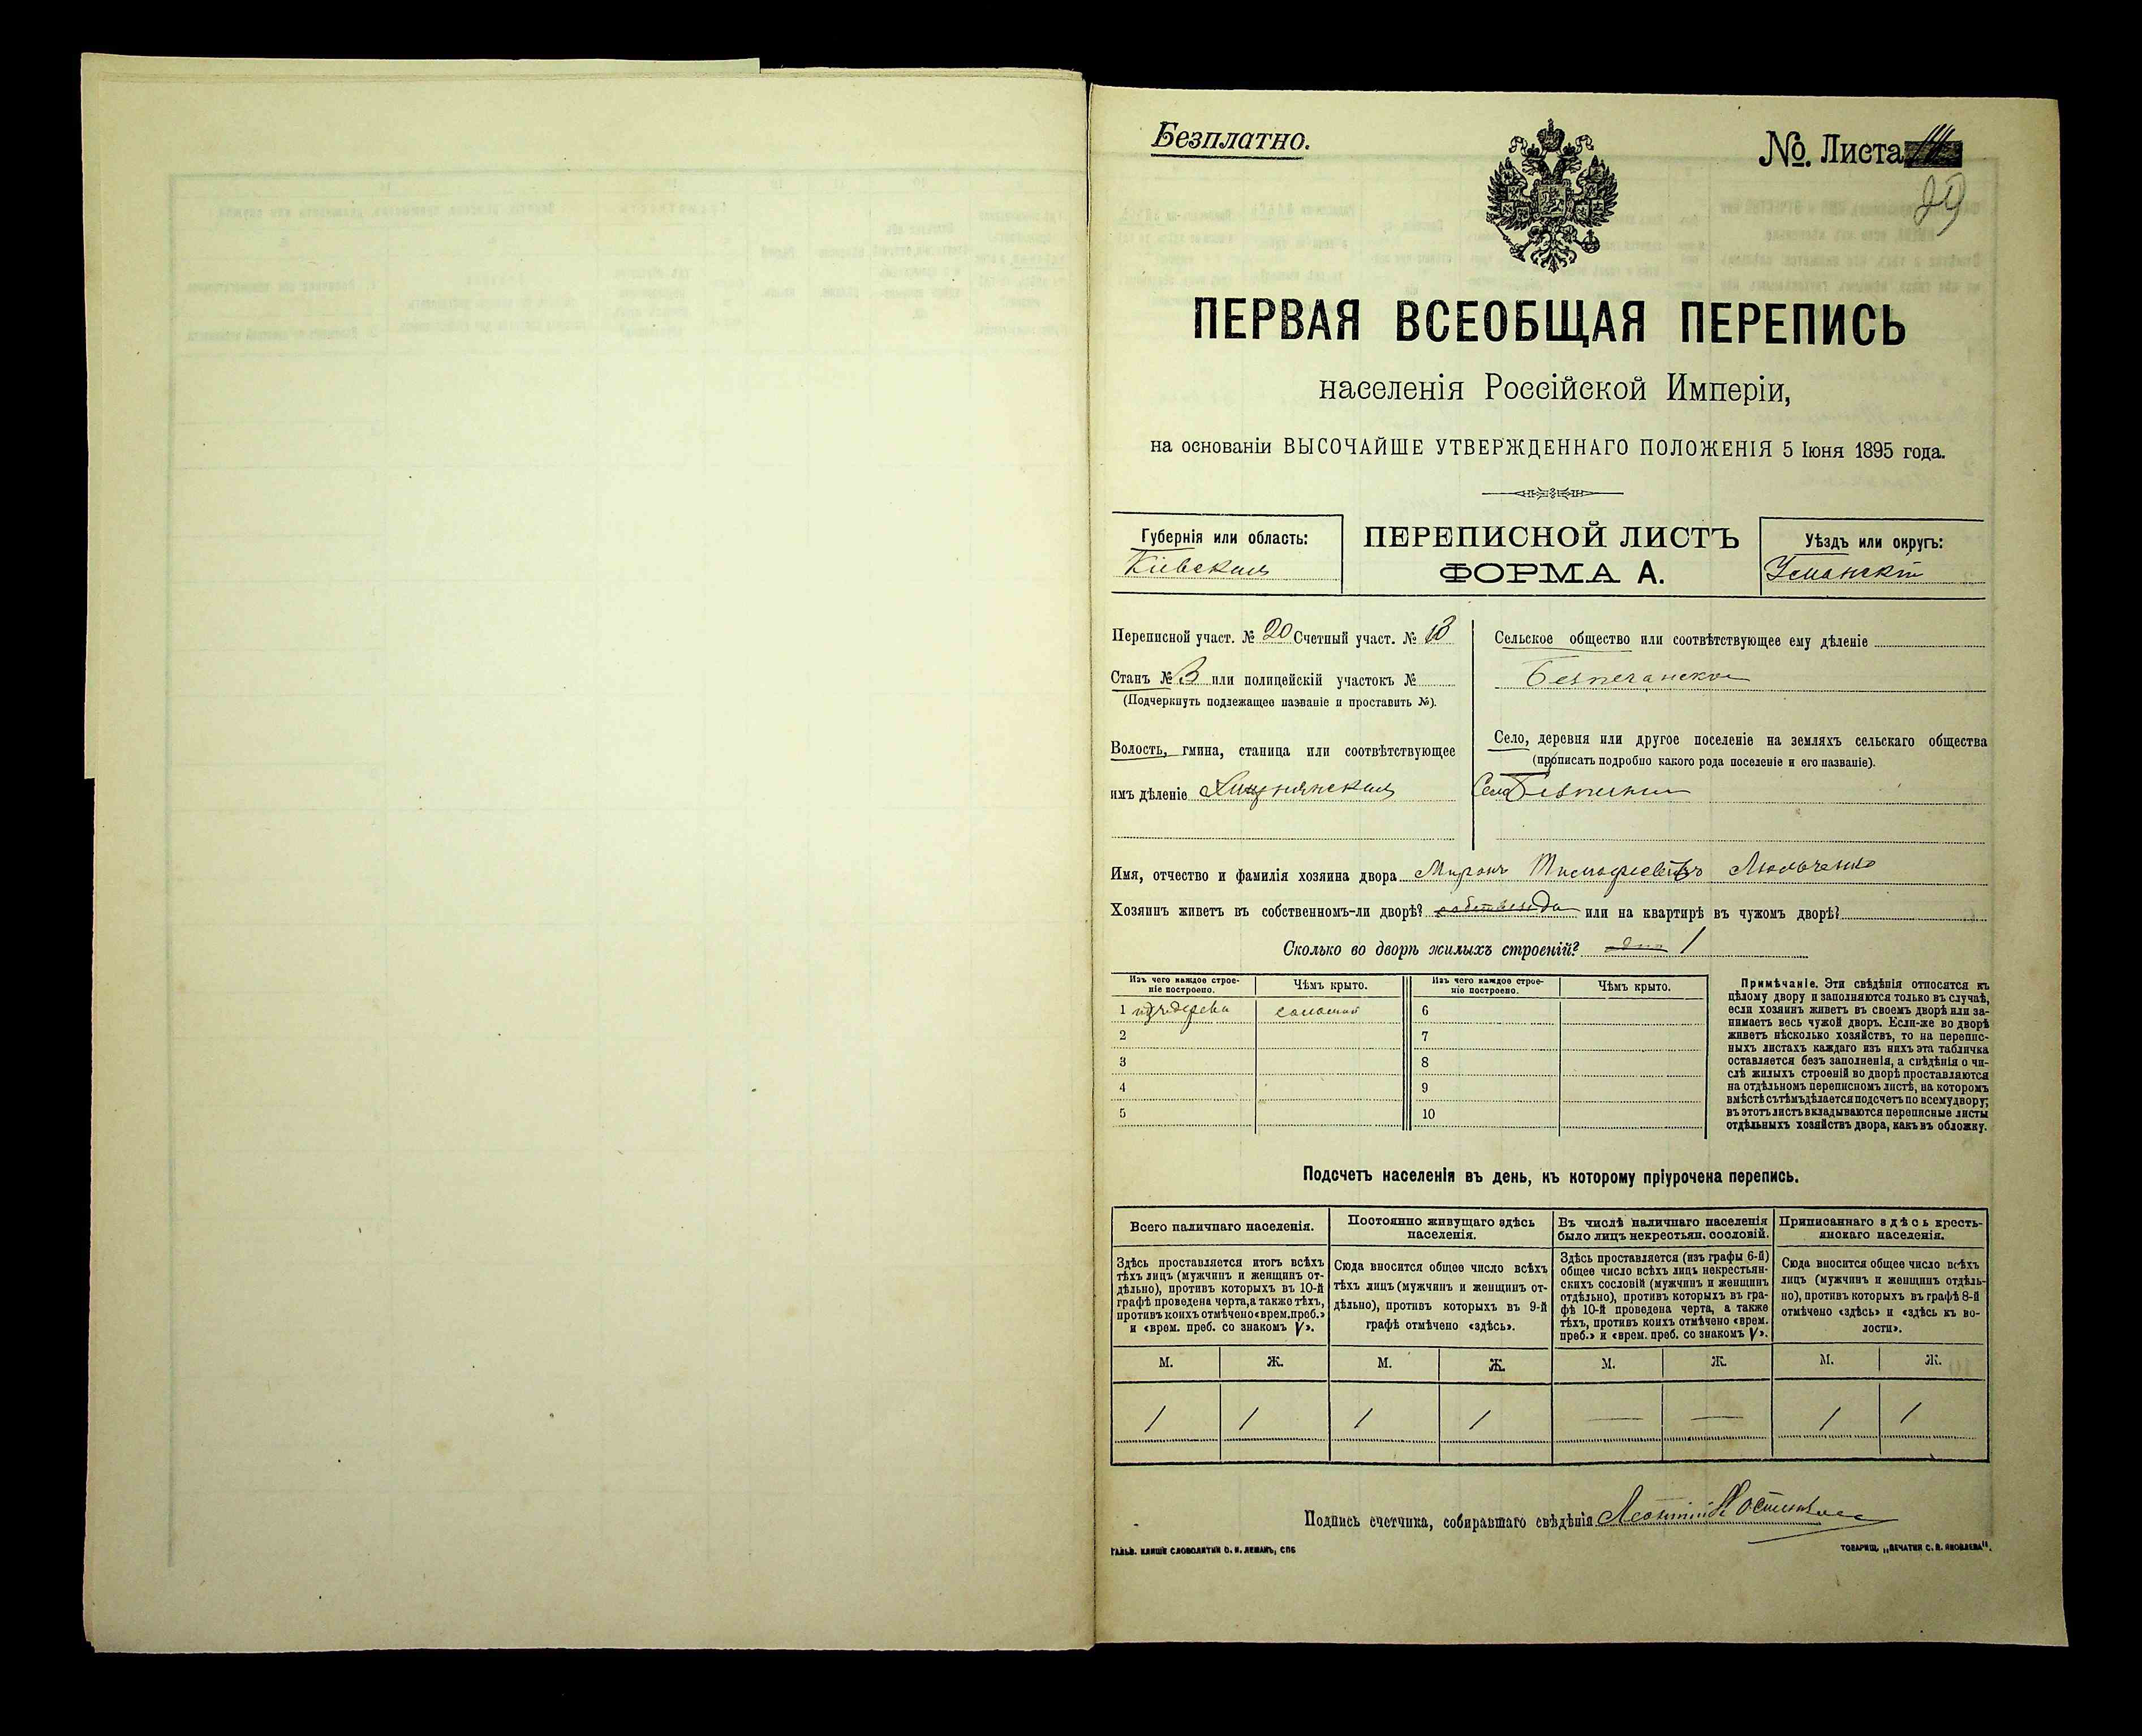 Безплатно.
№. Листа
29
ПЕРВАЯ ВСЕОБЩАЯ ПЕРЕПИСЬ
населенія Россійской Имперіи,
на основаніи ВЫСОЧАЙШЕ УТВЕРЖДЕННАГО ПОЛОЖЕНІЯ 5 Іюня 1895 года.
Губернія или область:
Кіевская
ПЕРЕПИСНОЙ ЛИСТЪ
ФОРМА А.
Уѣздъ или округъ:
Уманскій
Переписной участ. № 20 Счетный участ. № 18
Станъ № 3 или полицейскій участокъ №
(Подчеркнуть подлежащее названіе и проставить №).
Волость, гмина, станица или соотвѣтствующее
имъ дѣленіе
Сельское общество или соотвѣтствующее ему дѣленіе
Безпечанское
Село, деревня или другое поселеніе на земляхъ сельскаго общества
(прописать подробно какого рода поселеніе и его названіе).
Село
Имя, отчество и фамилія хозяина двора Миронъ Тимофеевичъ
Хозяинъ живетъ въ собственномъ-ли дворѣ? да или на квартирѣ въ чужомъ дворѣ?
Сколько во дворѣ жилыхъ строеній? 1
Изъ чего каждое строе-
ніе построено.
Чѣмъ крыто.
Изъ чего каждое строе-
ніе построено.
Чѣмъ крыто.
1 изъ дерева соломой 6
2 7
3 8
4 9
5 10
Примѣчаніе. Эти свѣдѣнія относятся къ
цѣлому двору и заполняются только въ случаѣ,
если хозяинъ живетъ въ своемъ дворѣ или за-
нимаетъ весь чужой дворъ. Если-же во дворѣ
живетъ нѣсколько хозяйствъ, то на перепис-
ныхъ листахъ каждаго изъ нихъ эта табличка
оставляется безъ заполненія, а свѣдѣнія о чи-
слѣ жилыхъ строеній во дворѣ проставляются
на отдѣльномъ переписномъ листѣ, на которомъ
вмѣстѣ съ тѣмъ дѣлается подсчетъ по всему двору;
въ этотъ листъ вкладываются переписные листы
отдѣльныхъ хозяйствъ двора, какъ въ обложку.
Подсчетъ населенія въ день, къ которому пріурочена перепись.
Всего наличнаго населенія.
Постоянно живущаго здѣсь
населенія.
Въ числѣ наличнаго населенія
было лицъ некрестьян. сословій.
Приписаннаго здѣсь кресть-
янскаго населенія.
Здѣсь проставляется итогъ всѣхъ
тѣхъ лицъ (мужчинъ и женщинъ от-
дѣльно), противъ которыхъ въ 10-й
графѣ проведена черта, а также тѣхъ,
противъ коихъ отмѣчено «врем. преб.»
и «врем. преб. со знакомъ V».
Сюда вносится общее число всѣхъ
тѣхъ лицъ (мужчинъ и женщинъ от-
дѣльно), противъ которыхъ въ 9-й
графѣ отмѣчено «здѣсь».
Здѣсь проставляется (изъ графы 6-й)
общее число всѣхъ лицъ некрестьян-
скихъ сословій (мужчинъ и женщинъ
отдѣльно), противъ которыхъ въ гра-
фѣ 10-й проведена черта, а также
тѣхъ, противъ коихъ отмѣчено «врем.
преб.» и «врем. преб. со знакомъ V».
Сюда вносится общее число всѣхъ
лицъ (мужчинъ и женщинъ отдѣль-
но), противъ которыхъ въ графѣ 8-й
отмѣчено «здѣсь» и «здѣсь къ во-
лости».
М. Ж. М. Ж. М. Ж. М. Ж.
1 1 1 1 — — 1 1
Подпись счетчика, собиравшаго свѣдѣнія
ГАЛЬВ. КЛИШЕ СЛОВОЛИТНИ О. И. ЛЕМАНЪ, СПБ
ТОВАРИЩ. „ПЕЧАТНЯ С. П. ЯКОВЛЕВА“.